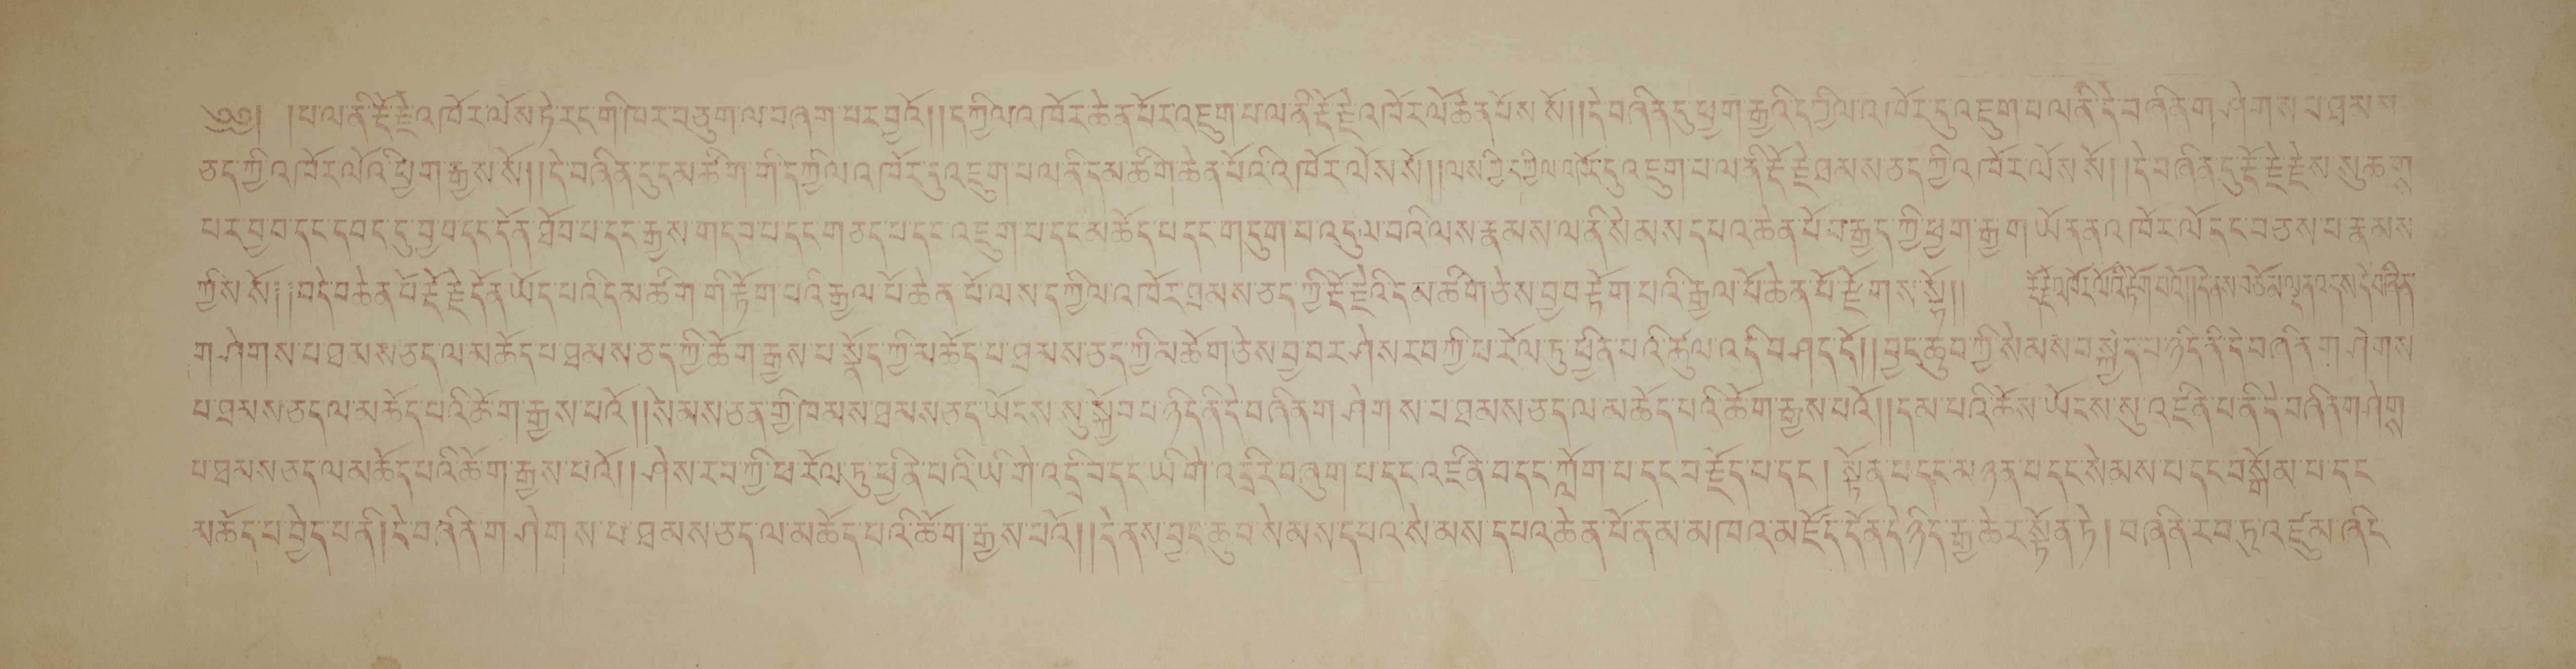 ༄༅། །པ་ལ་ནི་རྡོ་རྗེ་འཁོར་ལོས་ཏེ་རང་གི་ཁོར་བཅུག་ལ་བཞག་པར་བྱའོ། །དཀྱིལ་འཁོར་ཆེན་པོར་འཇུག་པ་ལ་ནི་རྡོ་རྗེ་འཁོར་ལོ་ཆེན་པོས་སོ། །དེ་བཞིན་དུ་ཕྱག་རྒྱའི་དཀྱིལ་འཁོར་དུ་འཇུག་པ་ལ་ནི་དེ་བཞིན་གཤེགས་པ་ཐམས་
ཅད་ཀྱི་འཁོར་ལོའི་ཕྱག་རྒྱས་སོ། །དེ་བཞིན་དུ་དམ་ཚིག་གི་དཀྱིལ་འཁོར་དུ་འཇུག་པ་ལ་ནི་དམ་ཚིག་ཆེན་པོའི་འཁོར་ལོས་སོ། །ལས་ཀྱི་དཀྱིལ་འཁོར་དུ་འཇུག་པ་ལ་ནི་རྡོ་རྗེ་ཐམས་ཅད་ཀྱི་འཁོར་ལོས་སོ། །དེ་བཞིན་དུ་རྡོ་རྗེ་རྗེས་སུ་ཆགས་
པར་བྱ་བ་དང་དབང་དུ་བྱ་བ་དང་དོན་ཐོབ་པ་དང་རྒྱས་གདབ་པ་དང་གཅད་པ་དང་འཇུག་པ་དང་མཆོད་པ་དང་གདུག་པ་འདུལ་བའི་ལས་རྣམས་ལ་ནི་སེམས་དཔའ་ཆེན་པོ་བརྒྱད་ཀྱི་ཕྱག་རྒྱ་གཡོན་ན་འཁོར་ལོ་དང་བཅས་པ་རྣམས་
ཀྱིས་སོ། །བདེ་བ་ཆེན་པོ་རྡོ་རྗེ་དོན་ཡོད་པའི་དམ་ཚིག་གི་རྟོག་པའི་རྒྱལ་པོ་ཆེན་པོ་ལས་དཀྱིལ་འཁོར་ཐམས་ཅད་ཀྱི་རྡོ་རྗེའི་དམ་ཚིག་ཅེས་བྱ་བ་རྟོག་པའི་རྒྱལ་པོ་ཆེན་པོ་རྫོགས་སྷོ།། རྡོ་རྗེ་འཁོར་ལོའི་རྟོག་པའོ། །དེ་ནས་བཅོམ་ལྡན་འདས་དེ་བཞིན་
གཤེགས་པ་ཐམས་ཅད་ལ་མཆོད་པ་ཐམས་ཅད་ཀྱི་ཆོ་ག་རྒྱས་པ་སྣོད་ཀྱི་མཆོད་པ་ཐམས་ཅད་ཀྱི་མཆོག་ཅེས་བྱ་བར་ཤེས་རབ་ཀྱི་ཕ་རོལ་ཏུ་ཕྱིན་པའི་ཚུལ་འདི་བཤད་དོ། །བྱང་ཆུབ་ཀྱི་སེམས་བསྐྱེད་པ་ཉིད་ནི་དེ་བཞིན་གཤེགས་
པ་ཐམས་ཅད་ལ་མཆོད་པའི་ཆོ་ག་རྒྱས་པའོ། །སེམས་ཅན་གྱི་ཁམས་ཐམས་ཅད་ཡོངས་སུ་སྐྱོབ་པ་ཉིད་ནི་དེ་བཞིན་གཤེགས་པ་ཐམས་ཅད་ལ་མཆོད་པའི་ཆོ་ག་རྒྱས་པའོ། །དམ་པའི་ཆོས་ཡོངས་སུ་འཛིན་པ་ནི་དེ་བཞིན་གཤེགས་
པ་ཐམས་ཅད་ལ་མཆོད་པའི་ཆོ་ག་རྒྱས་པའོ། །ཤེས་རབ་ཀྱི་ཕ་རོལ་ཏུ་ཕྱིན་པའི་ཡི་གེ་འདྲི་བ་དང་ཡི་གེ་འདྲིར་བཞུག་པ་དང་འཛིན་པ་དང་ཀློག་པ་དང་བརྗོད་པ་དང་། སྟོན་པ་དང་མཉན་པ་དང་སེམས་པ་དང་བསྒོམ་པ་དང་
མཆོད་པ་བྱེད་པ་ནི། དེ་བཞིན་གཤེགས་པ་ཐམས་ཅད་ལ་མཆོད་པའི་ཆོ་ག་རྒྱས་པའོ། །དེ་ནས་བྱང་ཆུབ་སེམས་དཔའ་སེམས་དཔའ་ཆེན་པོ་ནམ་མཁའ་མཛོད་དོན་དེ་ཉིད་རྒྱ་ཆེར་སྟོན་ཏེ། བཞིན་རབ་ཏུ་འཛུམ་ཞིང་